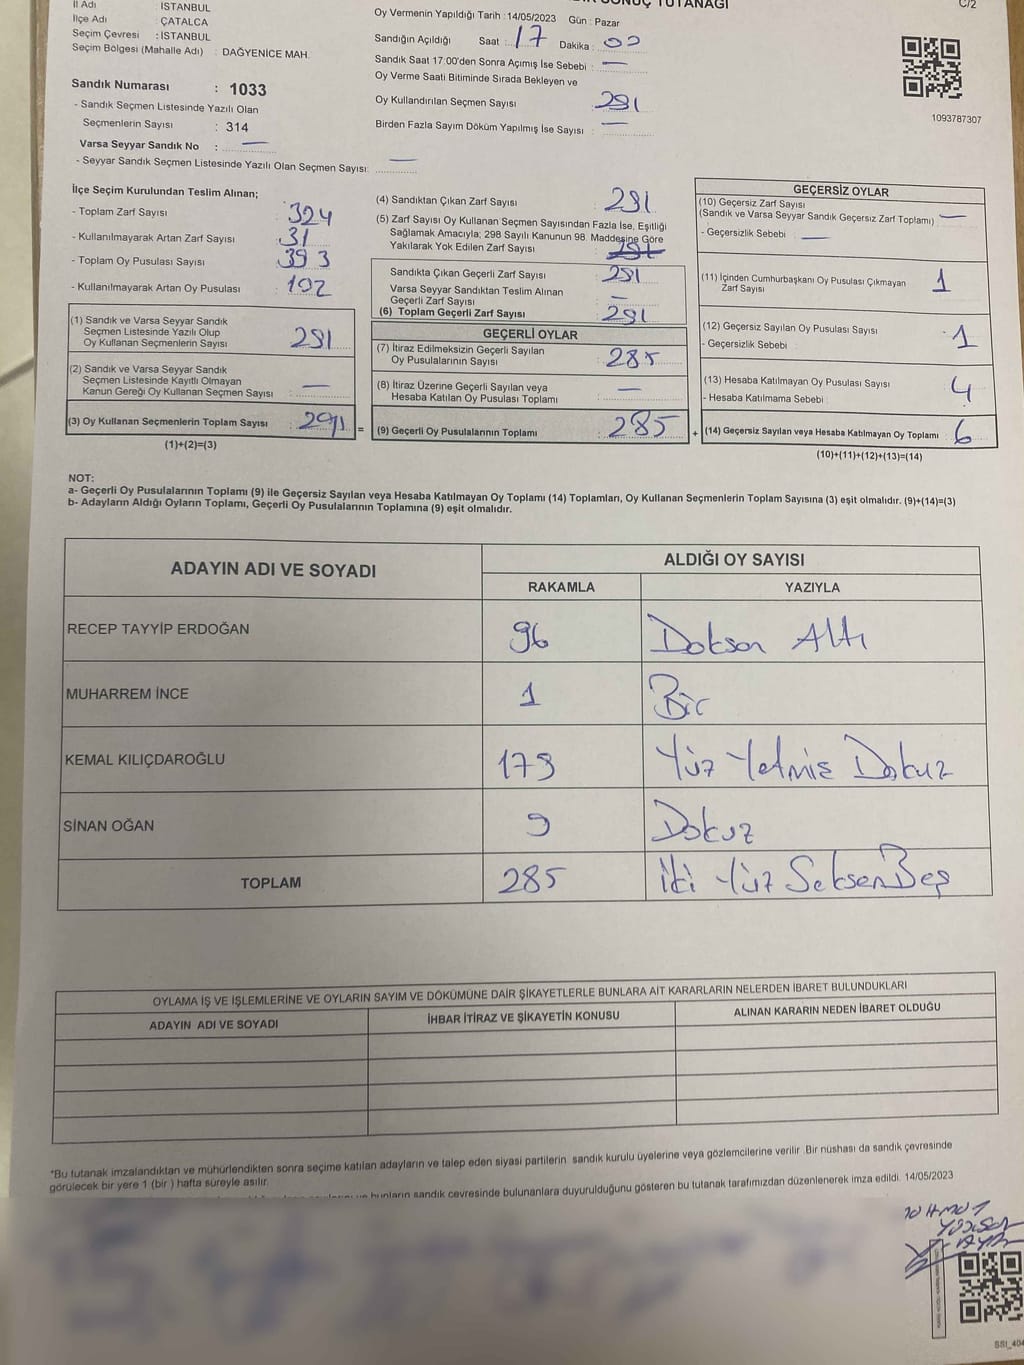 SONUÇ TUTANAĞI
C/2
İl Adı : İSTANBUL
İlçe Adı : ÇATALCA
Seçim Çevresi : İSTANBUL
Seçim Bölgesi (Mahalle Adı) : DAĞYENİCE MAH.
Oy Vermenin Yapıldığı Tarih : 14/05/2023 Gün : Pazar
Sandığın Açıldığı Saat : 17 Dakika : 00
Sandık Saat 17:00'den Sonra Açımış İse Sebebi : —
Oy Verme Saati Bitiminde Sırada Bekleyen ve
Oy Kullandırılan Seçmen Sayısı 291
Birden Fazla Sayım Döküm Yapılmış İse Sayısı : —
1093787307
Sandık Numarası : 1033
- Sandık Seçmen Listesinde Yazılı Olan
Seçmenlerin Sayısı : 314
Varsa Seyyar Sandık No : —
- Seyyar Sandık Seçmen Listesinde Yazılı Olan Seçmen Sayısı: —
İlçe Seçim Kurulundan Teslim Alınan;
- Toplam Zarf Sayısı : 324
- Kullanılmayarak Artan Zarf Sayısı : 31
- Toplam Oy Pusulası Sayısı : 393
- Kullanılmayarak Artan Oy Pusulası : 102
(1) Sandık ve Varsa Seyyar Sandık
Seçmen Listesinde Yazılı Olup
Oy Kullanan Seçmenlerin Sayısı : 291
(2) Sandık ve Varsa Seyyar Sandık
Seçmen Listesinde Kayıtlı Olmayan
Kanun Gereği Oy Kullanan Seçmen Sayısı : —
(3) Oy Kullanan Seçmenlerin Toplam Sayısı : 291 =
(1)+(2)=(3)
(4) Sandıktan Çıkan Zarf Sayısı : 291
(5) Zarf Sayısı Oy Kullanan Seçmen Sayısından Fazla İse, Eşitliği
Sağlamak Amacıyla; 298 Sayılı Kanunun 98. Maddesine Göre
Yakılarak Yok Edilen Zarf Sayısı :
Sandıkta Çıkan Geçerli Zarf Sayısı : 291
Varsa Seyyar Sandıktan Teslim Alınan
Geçerli Zarf Sayısı : —
(6) Toplam Geçerli Zarf Sayısı : 291
GEÇERLİ OYLAR
(7) İtiraz Edilmeksizin Geçerli Sayılan
Oy Pusulalarının Sayısı : 285
(8) İtiraz Üzerine Geçerli Sayılan veya
Hesaba Katılan Oy Pusulası Toplamı : —
(9) Geçerli Oy Pusulalarının Toplamı : 285 +
GEÇERSİZ OYLAR
(10) Geçersiz Zarf Sayısı
(Sandık ve Varsa Seyyar Sandık Geçersiz Zarf Toplamı) : —
- Geçersizlik Sebebi : —
(11) İçinden Cumhurbaşkanı Oy Pusulası Çıkmayan
Zarf Sayısı : 1
(12) Geçersiz Sayılan Oy Pusulası Sayısı : 1
- Geçersizlik Sebebi :
(13) Hesaba Katılmayan Oy Pusulası Sayısı : 4
- Hesaba Katılmama Sebebi :
(14) Geçersiz Sayılan veya Hesaba Katılmayan Oy Toplamı : 6
(10)+(11)+(12)+(13)=(14)
NOT:
a- Geçerli Oy Pusulalarının Toplamı (9) ile Geçersiz Sayılan veya Hesaba Katılmayan Oy Toplamı (14) Toplamları, Oy Kullanan Seçmenlerin Toplam Sayısına (3) eşit olmalıdır. (9)+(14)=(3)
b- Adayların Aldığı Oyların Toplamı, Geçerli Oy Pusulalarının Toplamına (9) eşit olmalıdır.
ADAYIN ADI VE SOYADI ALDIĞI OY SAYISI
RAKAMLA YAZIYLA
RECEP TAYYİP ERDOĞAN 96 Doksan Altı
MUHARREM İNCE 1 Bir
KEMAL KILIÇDAROĞLU 179 Yüz Yetmiş Dokuz
SİNAN OĞAN 9 Dokuz
TOPLAM 285 İki Yüz Seksen Beş
OYLAMA İŞ VE İŞLEMLERİNE VE OYLARIN SAYIM VE DÖKÜMÜNE DAİR ŞİKAYETLERLE BUNLARA AİT KARARLARIN NELERDEN İBARET BULUNDUKLARI
ADAYIN ADI VE SOYADI İHBAR İTİRAZ VE ŞİKAYETİN KONUSU ALINAN KARARIN NEDEN İBARET OLDUĞU
*Bu tutanak imzalandıktan ve mühürlendikten sonra seçime katılan adayların ve talep eden siyasi partilerin sandık kurulu üyelerine veya gözlemcilerine verilir. Bir nüshası da sandık çevresinde
görülecek bir yere 1 (bir) hafta süreyle asılır.
bunların sandık çevresinde bulunanlara duyurulduğunu gösteren bu tutanak tarafımızdan düzenlenerek imza edildi. 14/05/2023